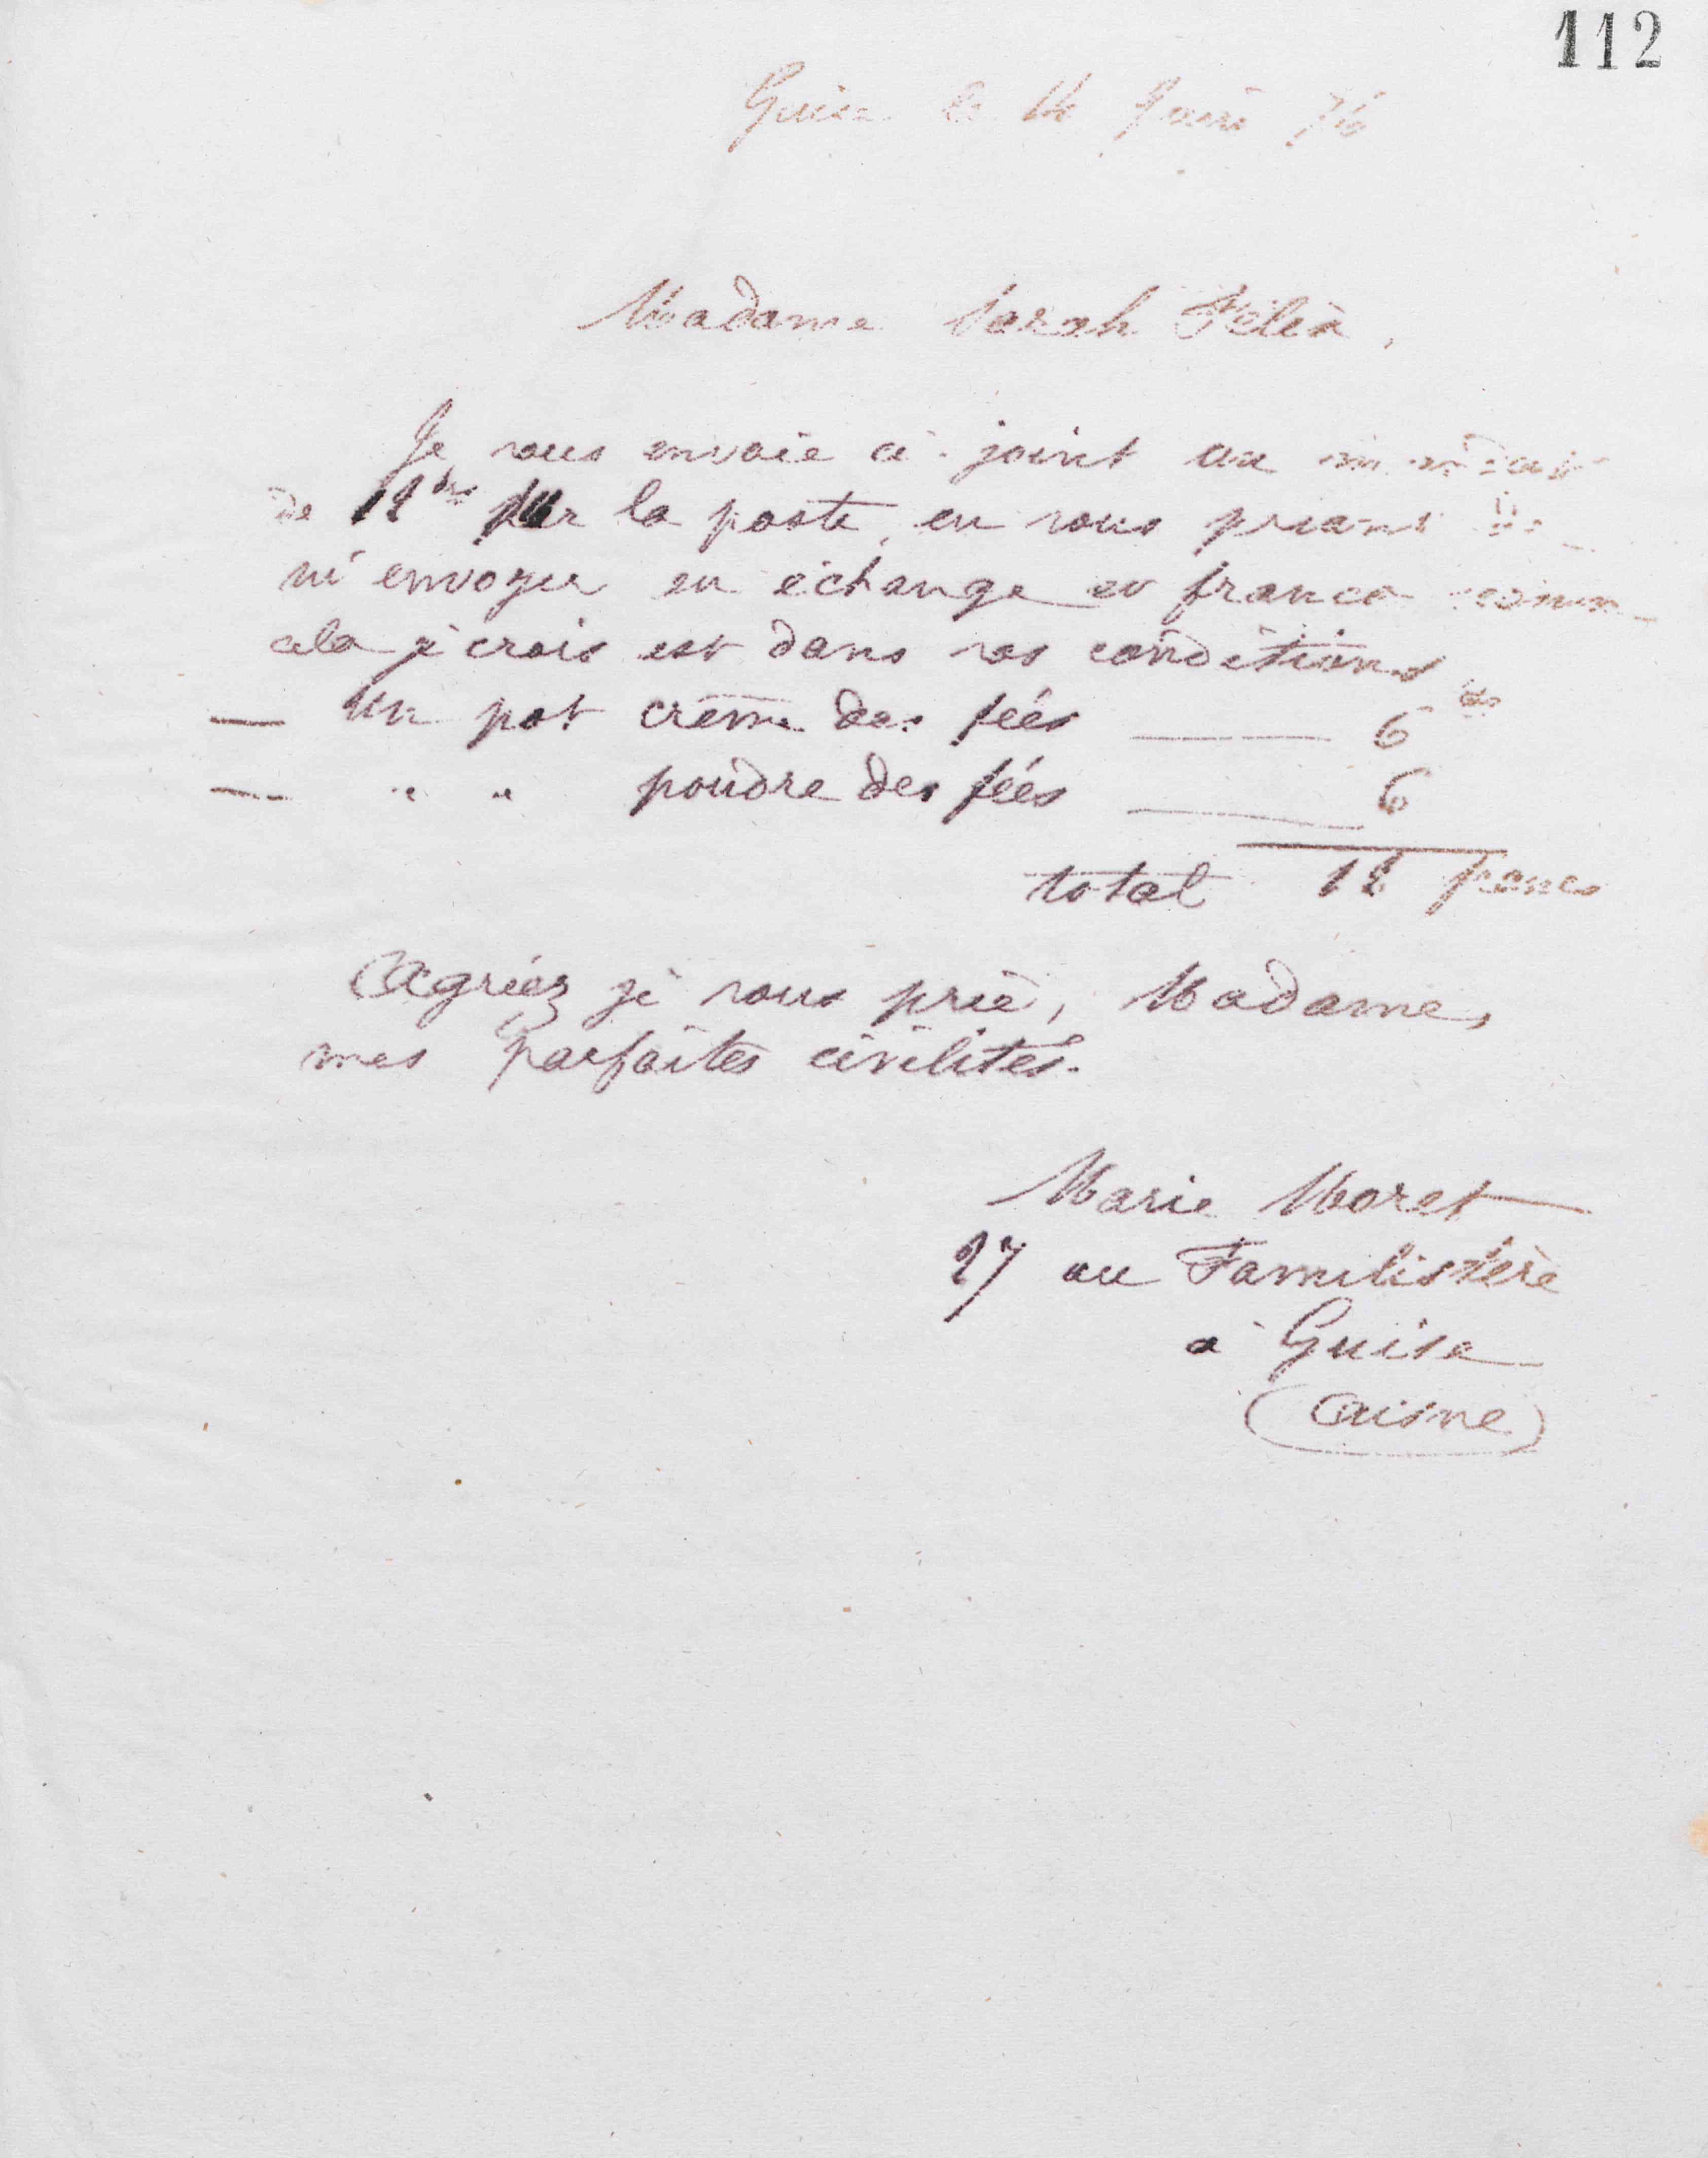 112
Guise le 14 Juin 76
Madame Sarah Félix,
Je vous envoie ci-joint un mandat
de 12 frs par la poste, en vous priant de
m'envoyer en échange et franco comme
cela je crois est dans vos conditions
— Un pot crème des fées —— 6 frs
— " " poudre des fées —— 6
total 12 francs
Agréez je vous prie, Madame,
mes parfaites civilités.
Marie Moret
27 au Familistère
à Guise
(Aisne)